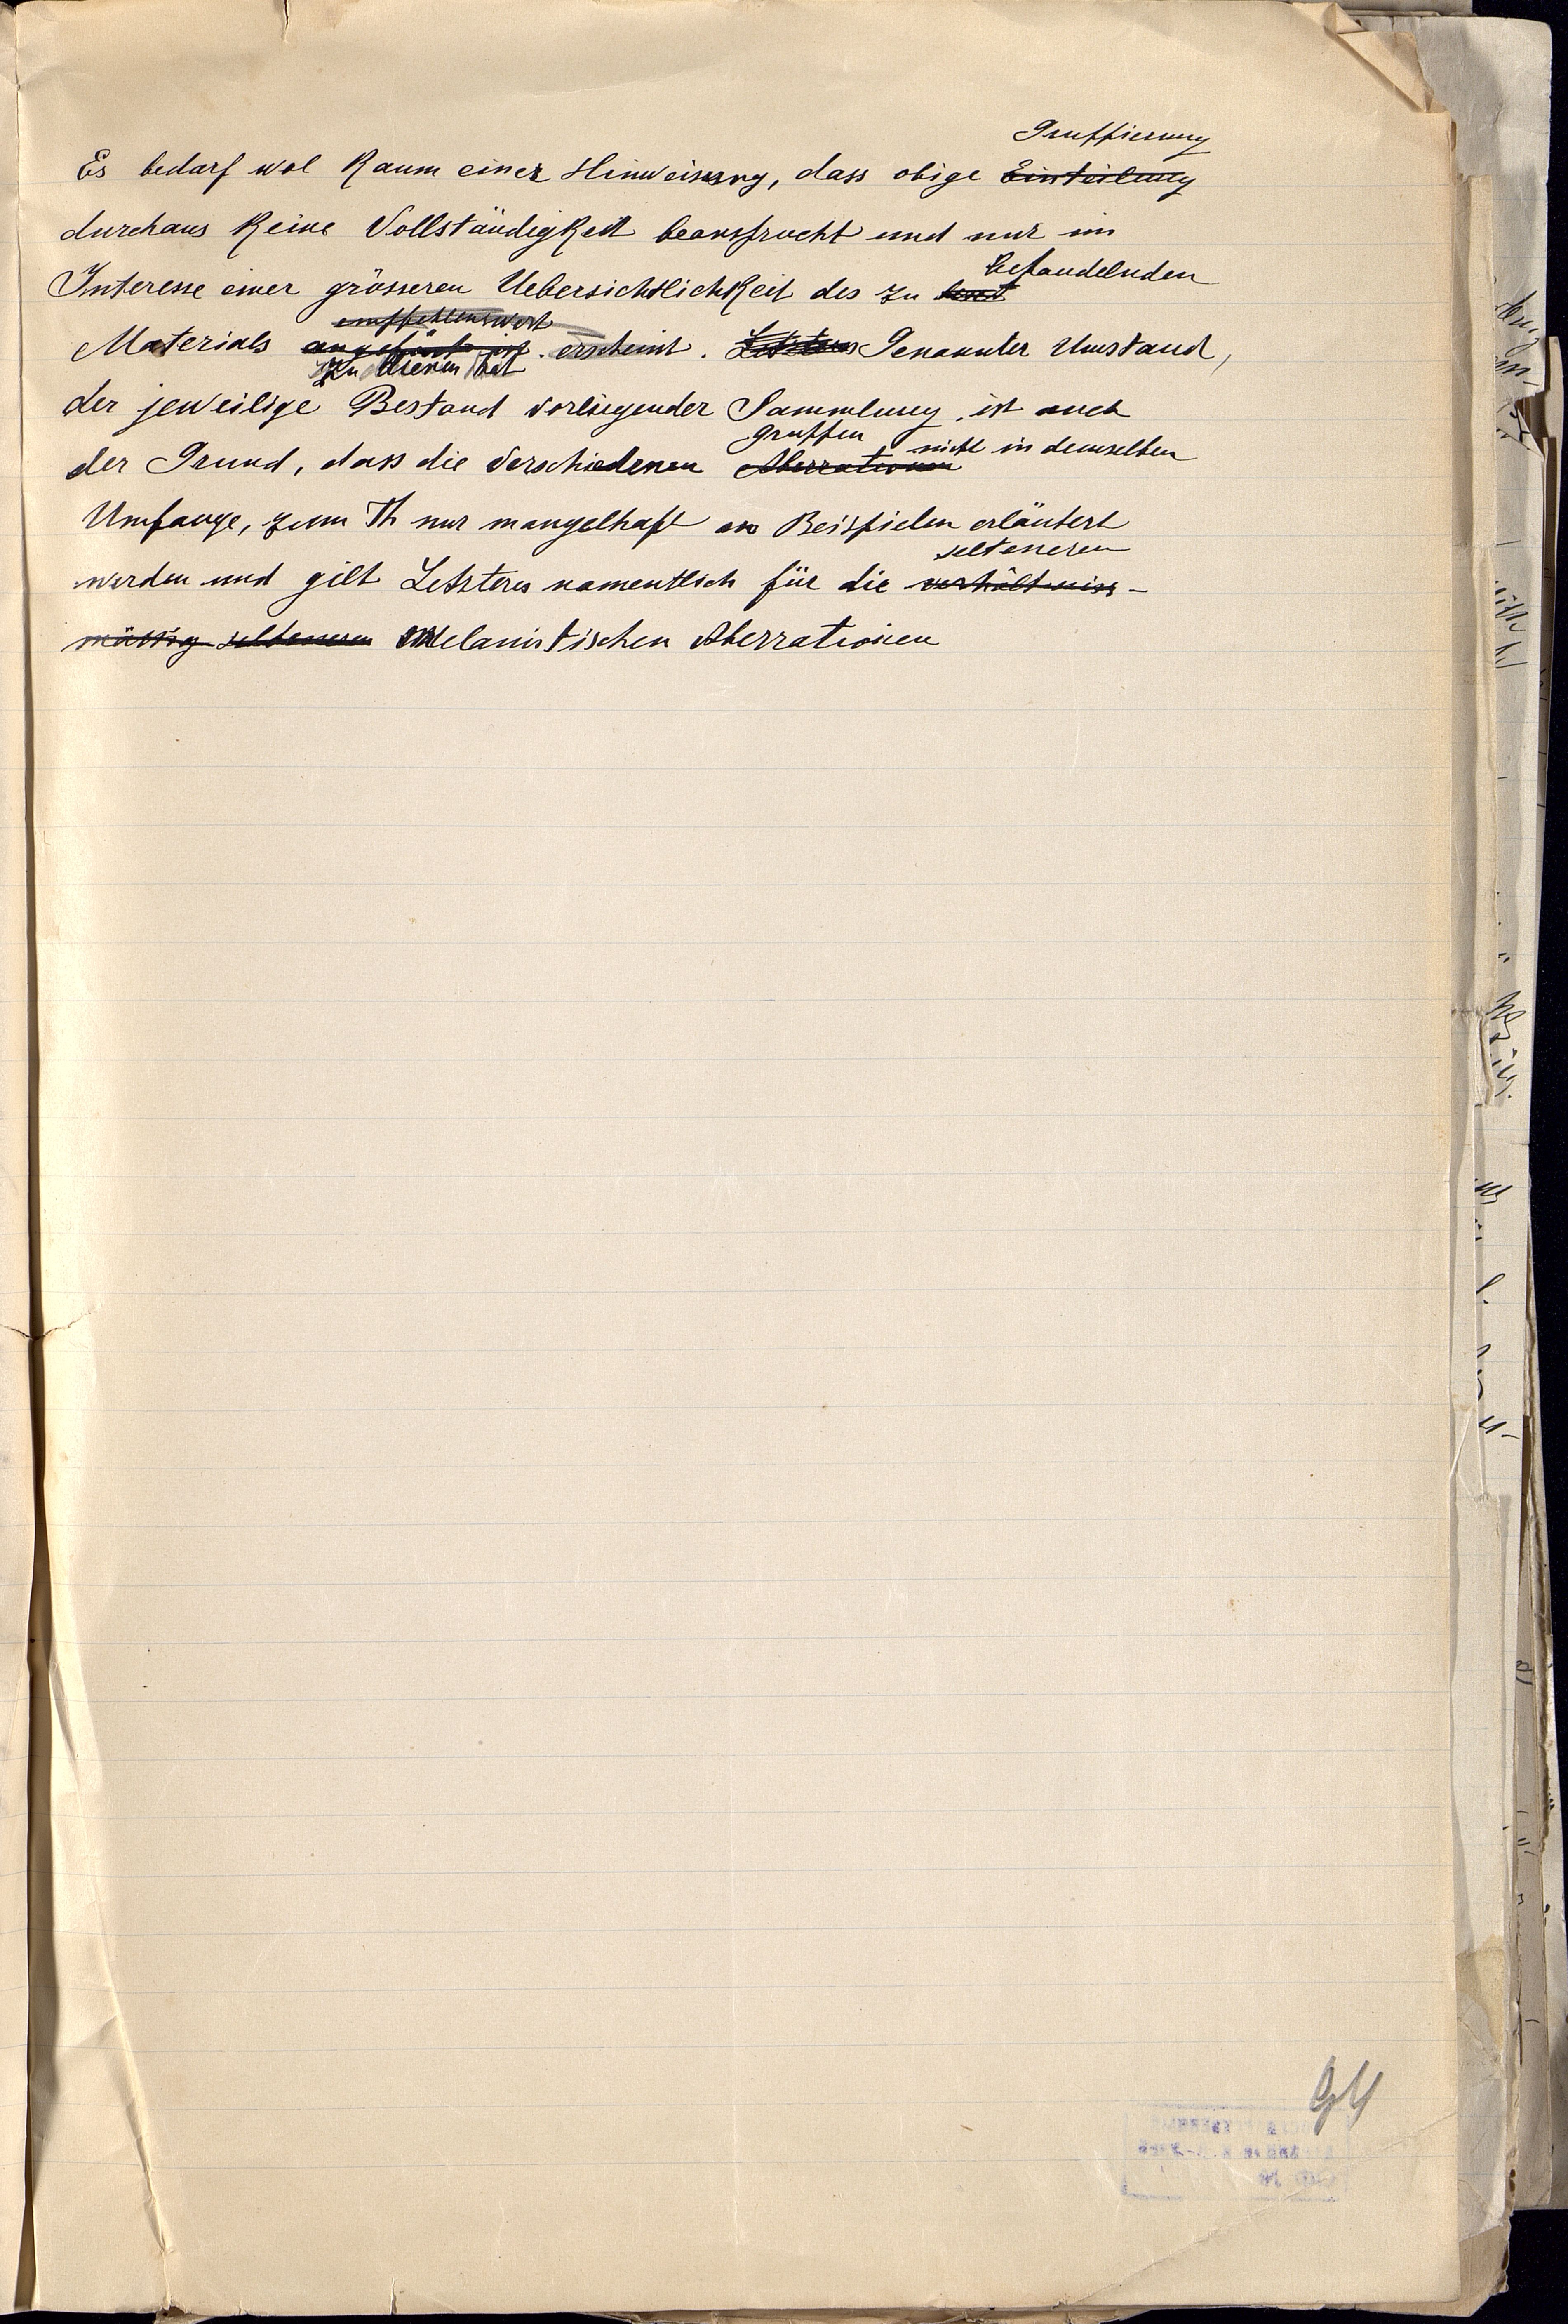 Gruppierung
Es bedarf wol kaum einer Hinweisung, dass obige Einteilung
durchaus keine Vollständigkeit beansprucht und nur im
behandelnden
Interesse einer grösseren Uebersichtlichkeit des zu
empfehlenswert
Materials angeführt ist. erscheint. Letzteres Genannter Umstand,
zu dienen hat
der jeweilige Bestand vorliegender Sammlung, ist auch
gruppen nicht in demselben
der Grund, dass die verschiedenen Aberrationen
Umfange, zum Th nur mangelhaft an Beispielen erläutert
selteneren
werden und gilt Letzteres namentlich für die verhältniss-
mässig selteneren melanistischen Aberrationen